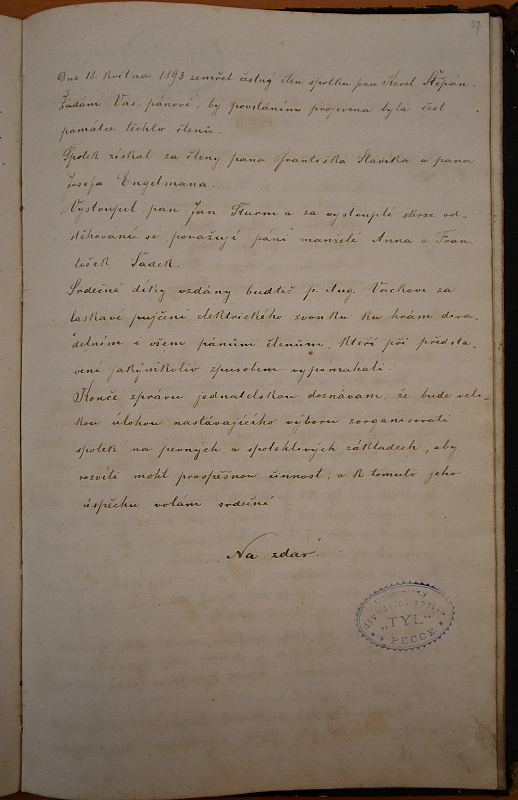 57
Dne 18. května 1893 zemřel čestný člen spolku pan Karel Štěpán.
Žádám Vás, pánové, by povstáním projevena byla čest
památce těchto členů.
Spolek získal za členy pana Františka Slavíka a pana
Josefa Engelmana.
Vystoupil pan Jan Šturm a za vystouplé skrze od-
stěhování se považují páni manželé Anna a Fran-
tišek Sádek.
Srdečné díky vzdány buďtež p. Aug. Vackovi za
laskavé pujčení elektrického zvonku ku hrám diva-
delním i všem pánům členům, kteří při předsta-
vení jakýmkoliv spusobem vypomáhali.
Konče zprávu jednatelskou doznávam, že bude veli-
kou úlohou nastávajícího výboru zorganisovati
spolek na pevných a spolehlivých základech, aby
rozvíti mohl prospěšnou činnost, a k tomuto jeho
úspěchu volám srdečné
Na zdar!
divadelní spolek
"TYL"
PECCE